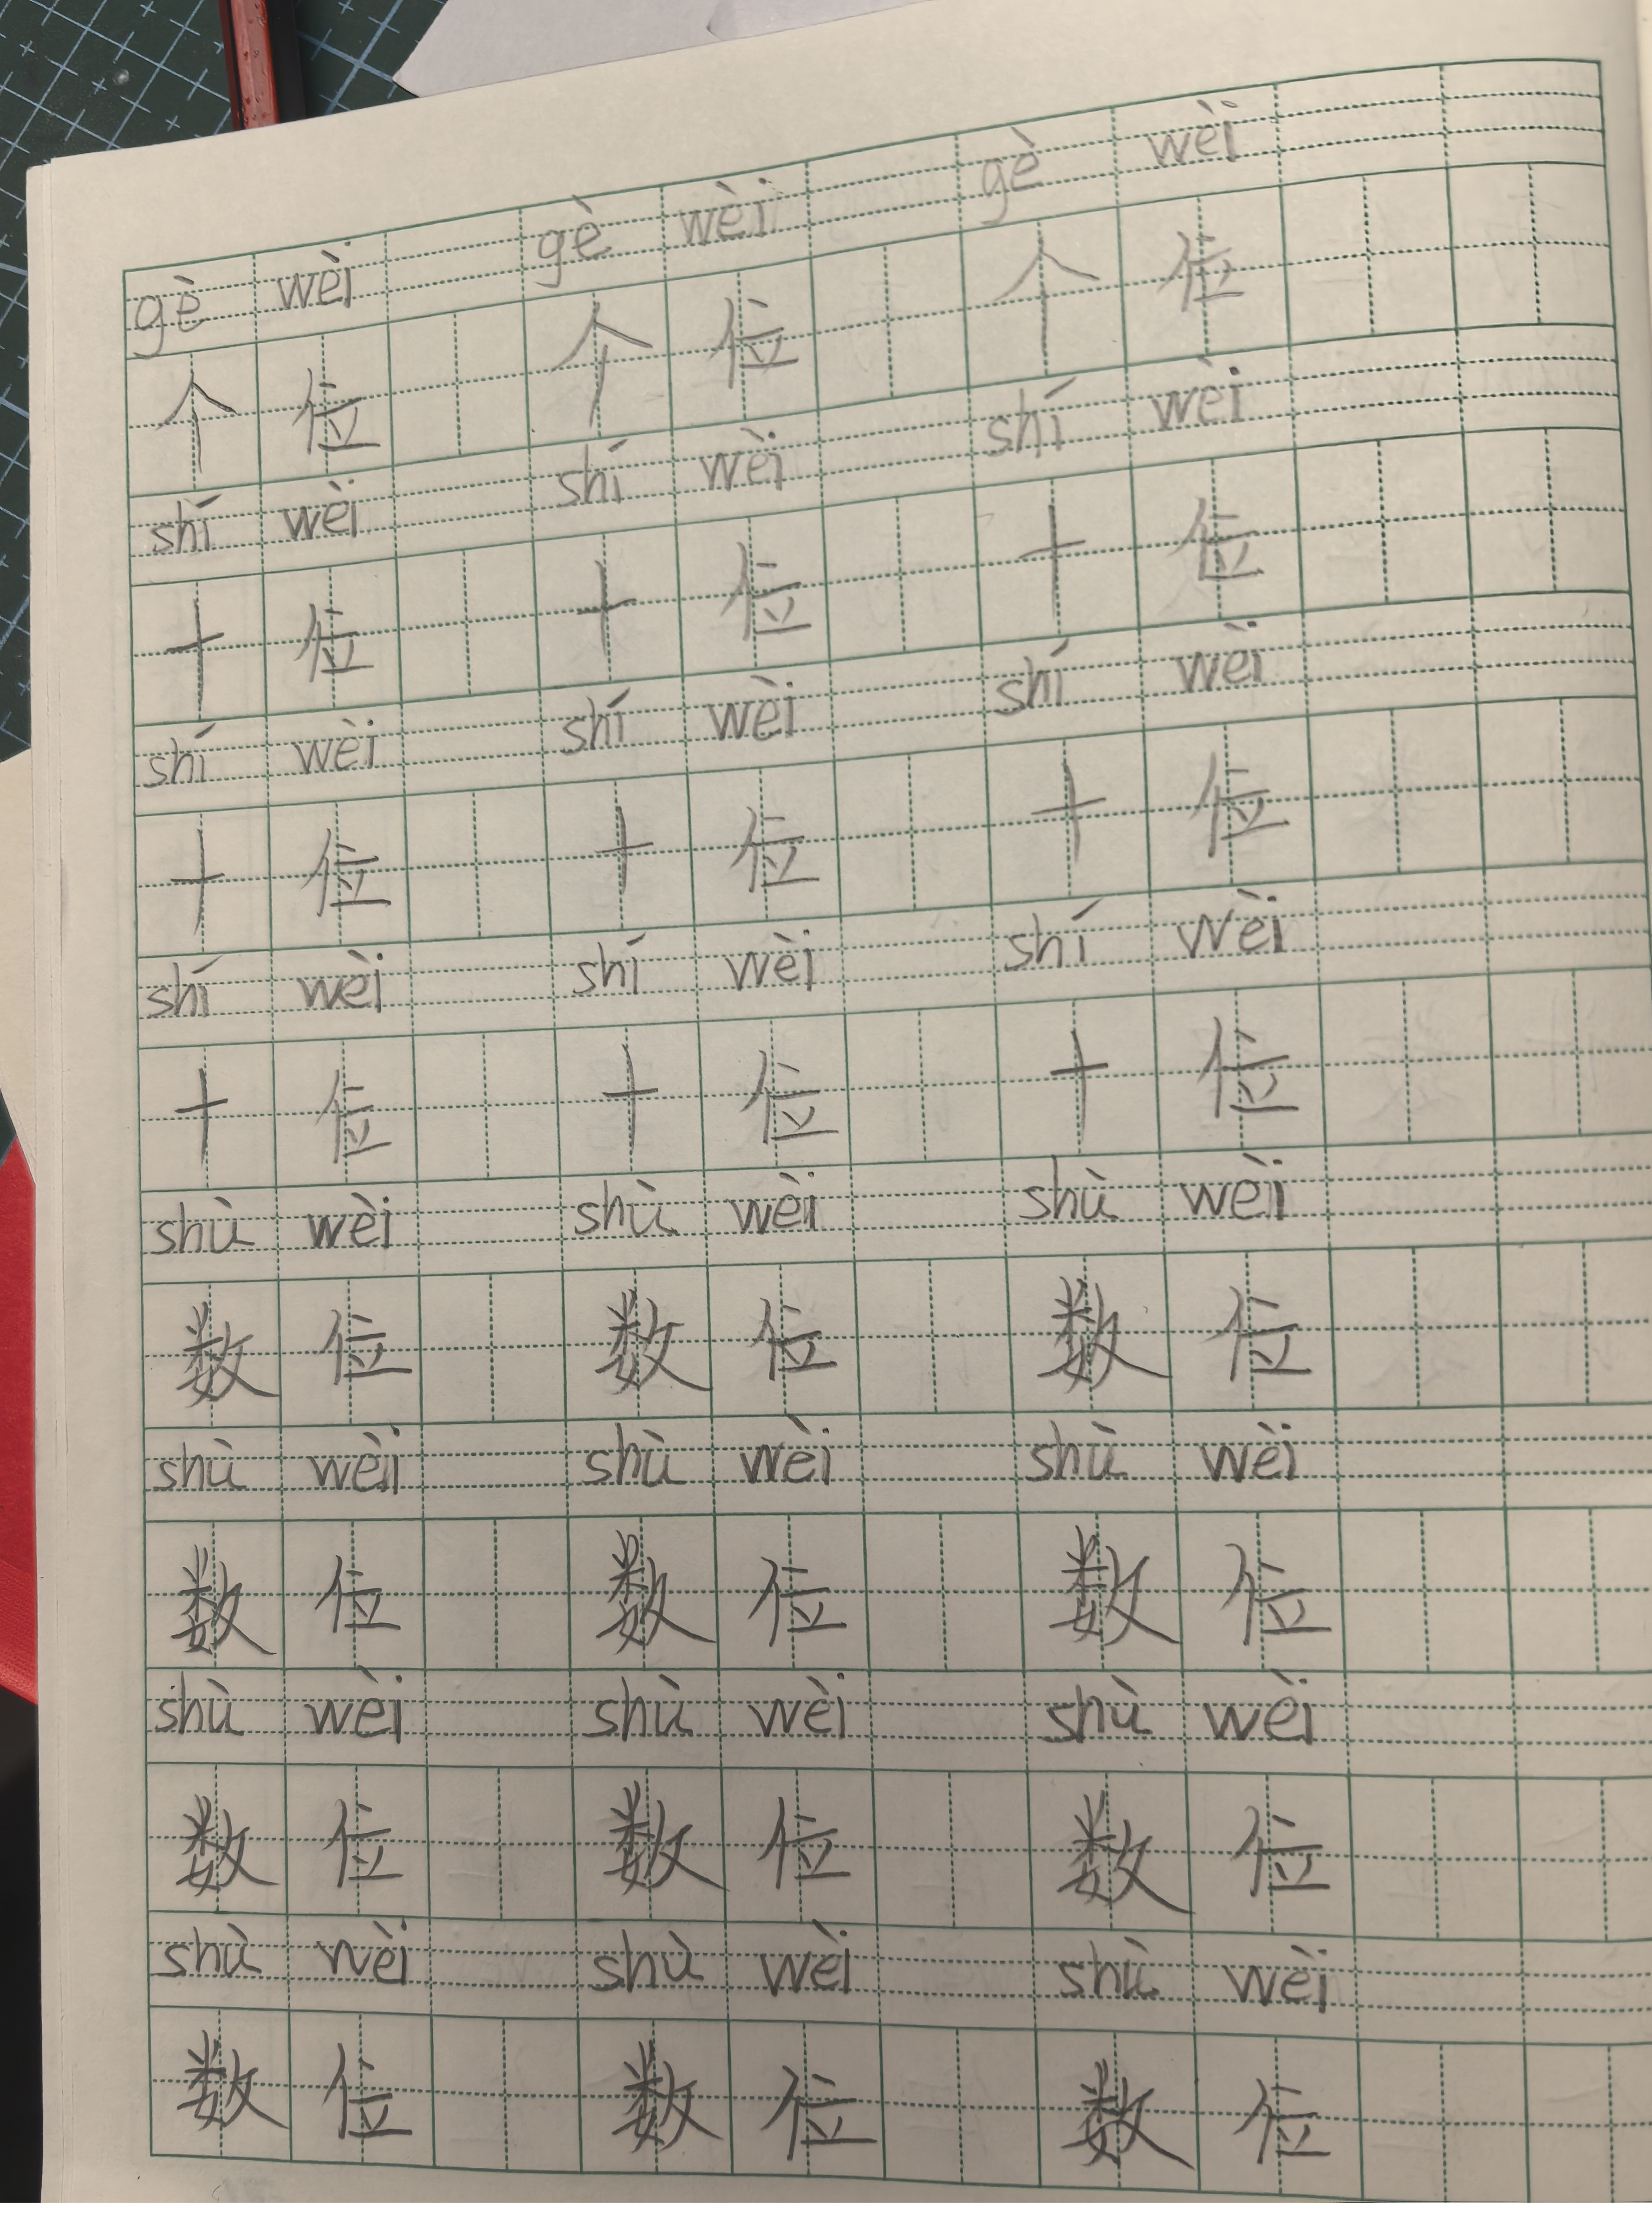 gè wèi gè wèi gè wèi
个 位 个 位 个 位
shí wèi shí wèi shí wèi
十 位 十 位 十 位
shí wèi shí wèi shí wèi
十 位 十 位 十 位
shí wèi shí wèi shí wèi
十 位 十 位 十 位
shù wèi shù wèi shù wèi
数 位 数 位 数 位
shù wèi shù wèi shù wèi
数 位 数 位 数 位
shù wèi shù wèi shù wèi
数 位 数 位 数 位
shù wèi shù wèi shù wèi
数 位 数 位 数 位